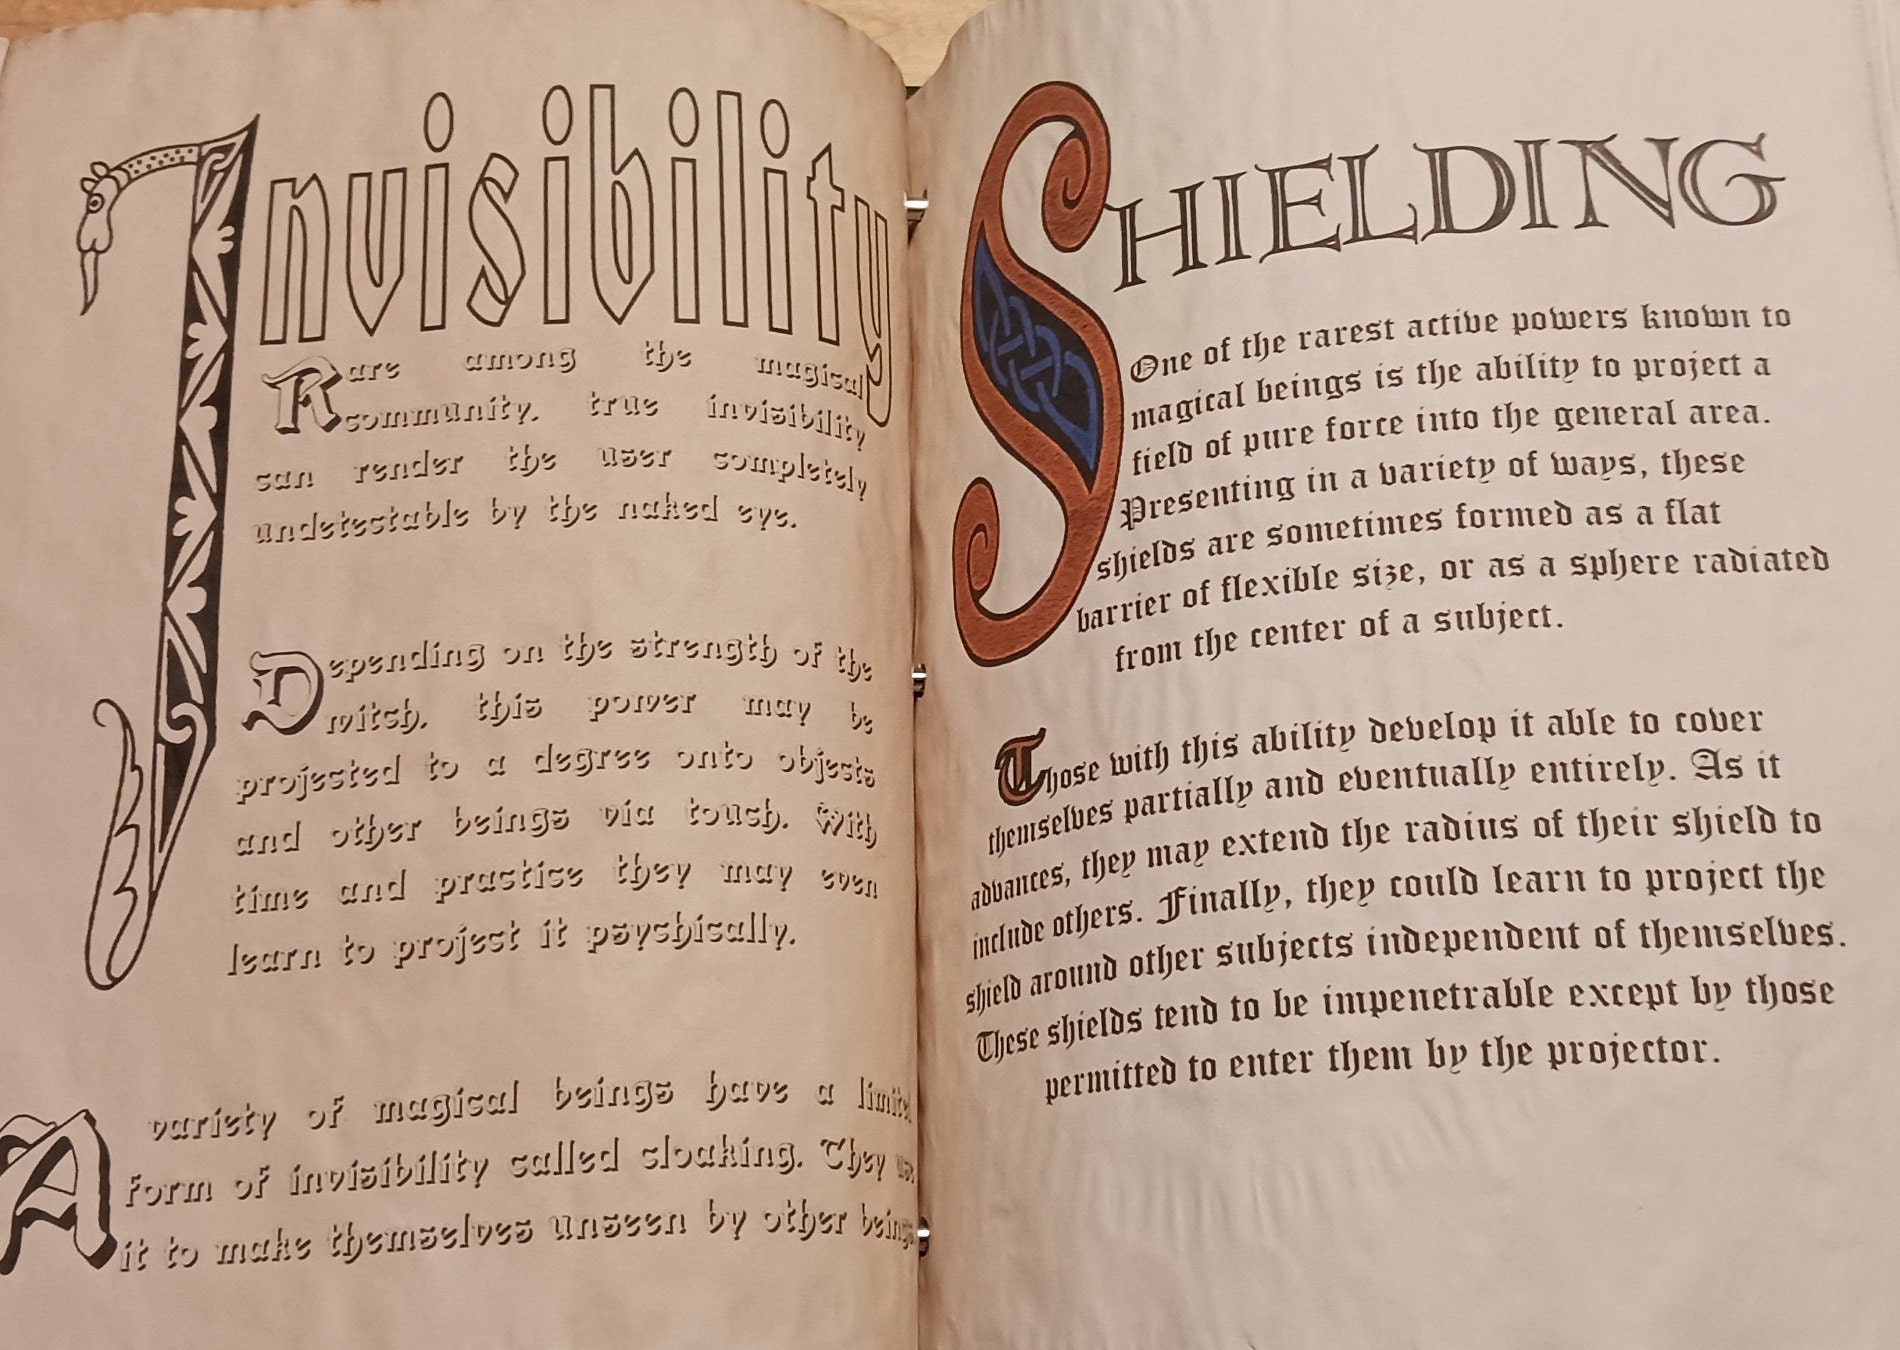 Invisibility
Rare among the magical
community, true invisibility
can render the user completely
undetectable by the naked eye.
Depending on the strength of the
witch, this power may be
projected to a degree onto objects
and other beings via touch. With
time and practice they may even
learn to project it psychically.
A variety of magical beings have a limited
form of invisibility called cloaking. They use
it to make themselves unseen by other beings
SHIELDING
One of the rarest active powers known to
magical beings is the ability to project a
field of pure force into the general area.
Presenting in a variety of ways, these
shields are sometimes formed as a flat
barrier of flexible size, or as a sphere radiated
from the center of a subject.
Those with this ability develop it able to cover
themselves partially and eventually entirely. As it
advances, they may extend the radius of their shield to
include others. Finally, they could learn to project the
shield around other subjects independent of themselves.
These shields tend to be impenetrable except by those
permitted to enter them by the projector.